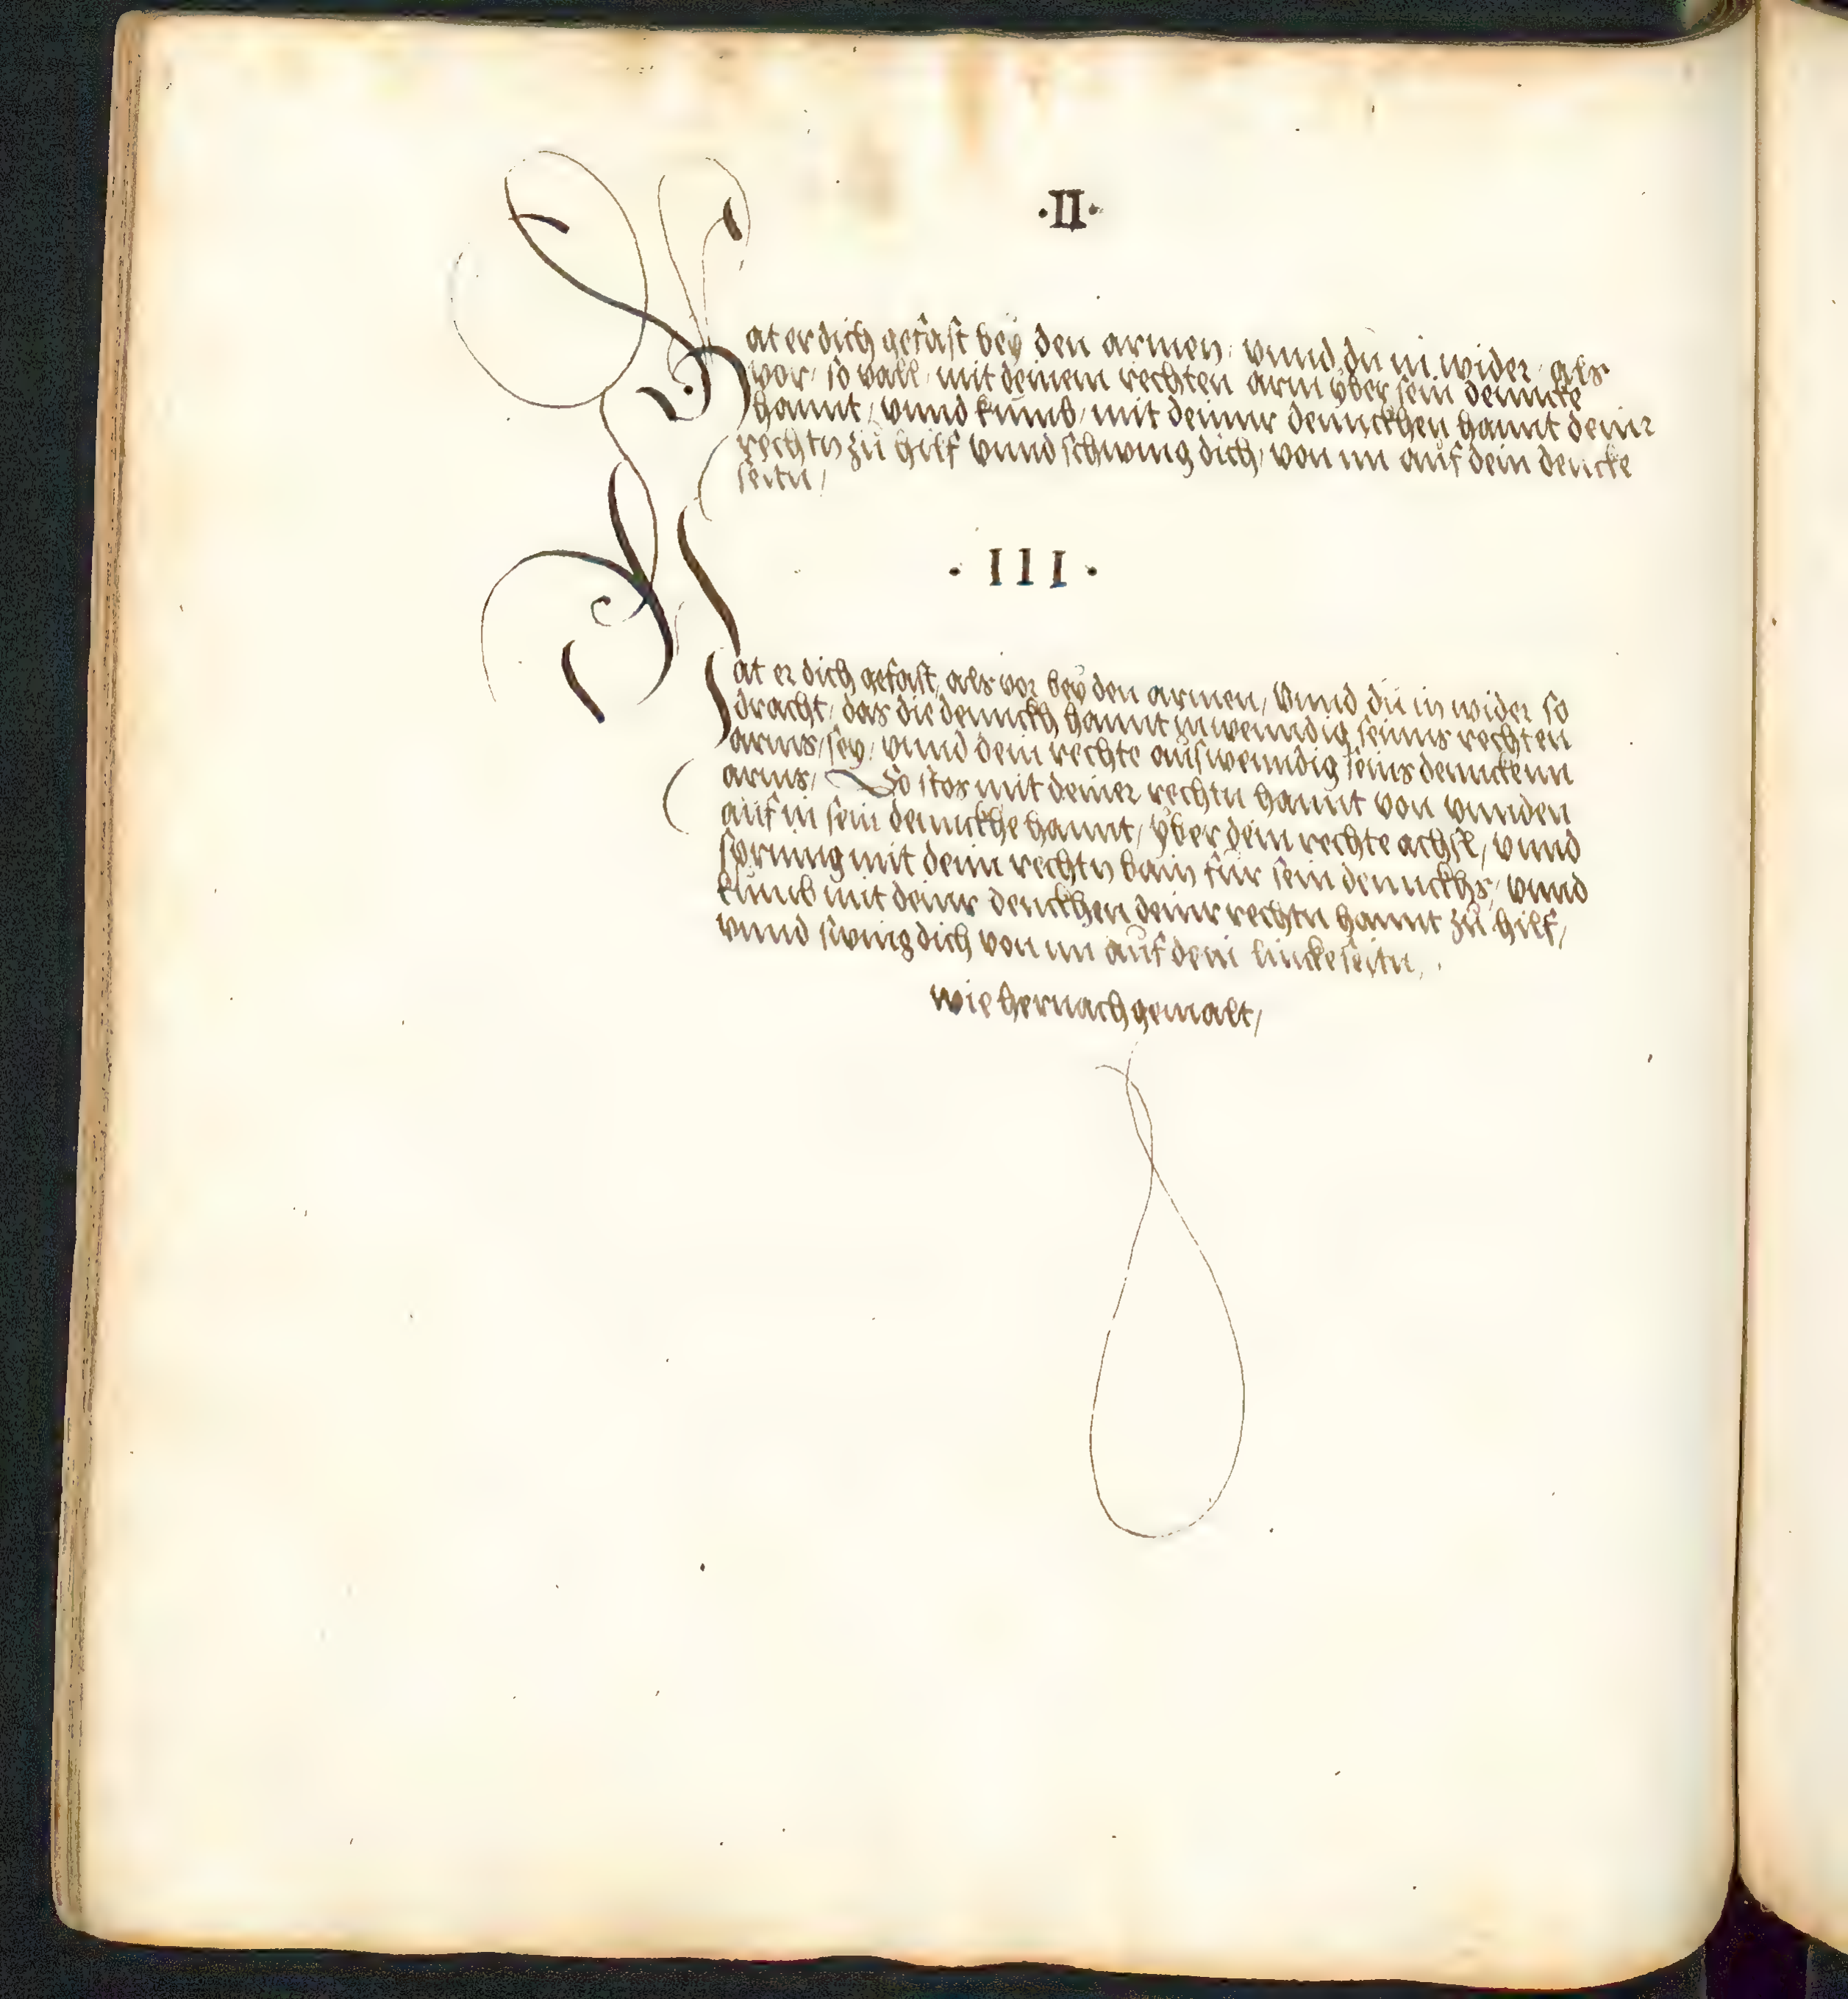 ·II·
Hat er dich gefast bey den armen, vnnd du in wider, als
vor, so vall, mit deinem rechten arm yber sein dennckh
hannt, vnnd kumb, mit deinnr dennckhen hannt deinr
rechtn zu hilf vnnd schwing dich, von im auf dein dencke
seitn,
·III·
Hat er dich gefast, als vor bey den armen, vnnd du in wider so
dracht, das die dennckh hannt inwenndig seinns rechten
arms, sey, vnnd dein rechte auswenndig seins dennckenn
arms, So stos mit deiner rechtn hannt von vnnden
auf in sein dennckhe hannt, yber dein rechte achsl, vnnd
sprinng mit deim rechtn bain für sein dennckhs, vnnd
kumb mit deinr denckhen deinr rechtn hannt zu hilf,
vnnd swing dich von im auf dein lincke seitn,
wie hernach gemalt,